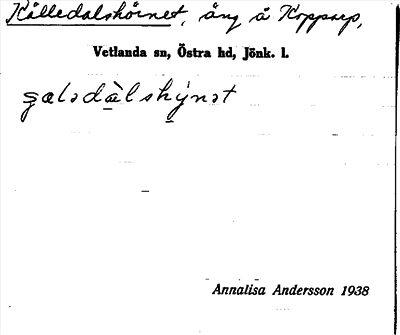 Källedalshörnet, äng å Kopparp,
Vetlanda sn, Östra hd, Jönk. l.
Annalisa Andersson 1938